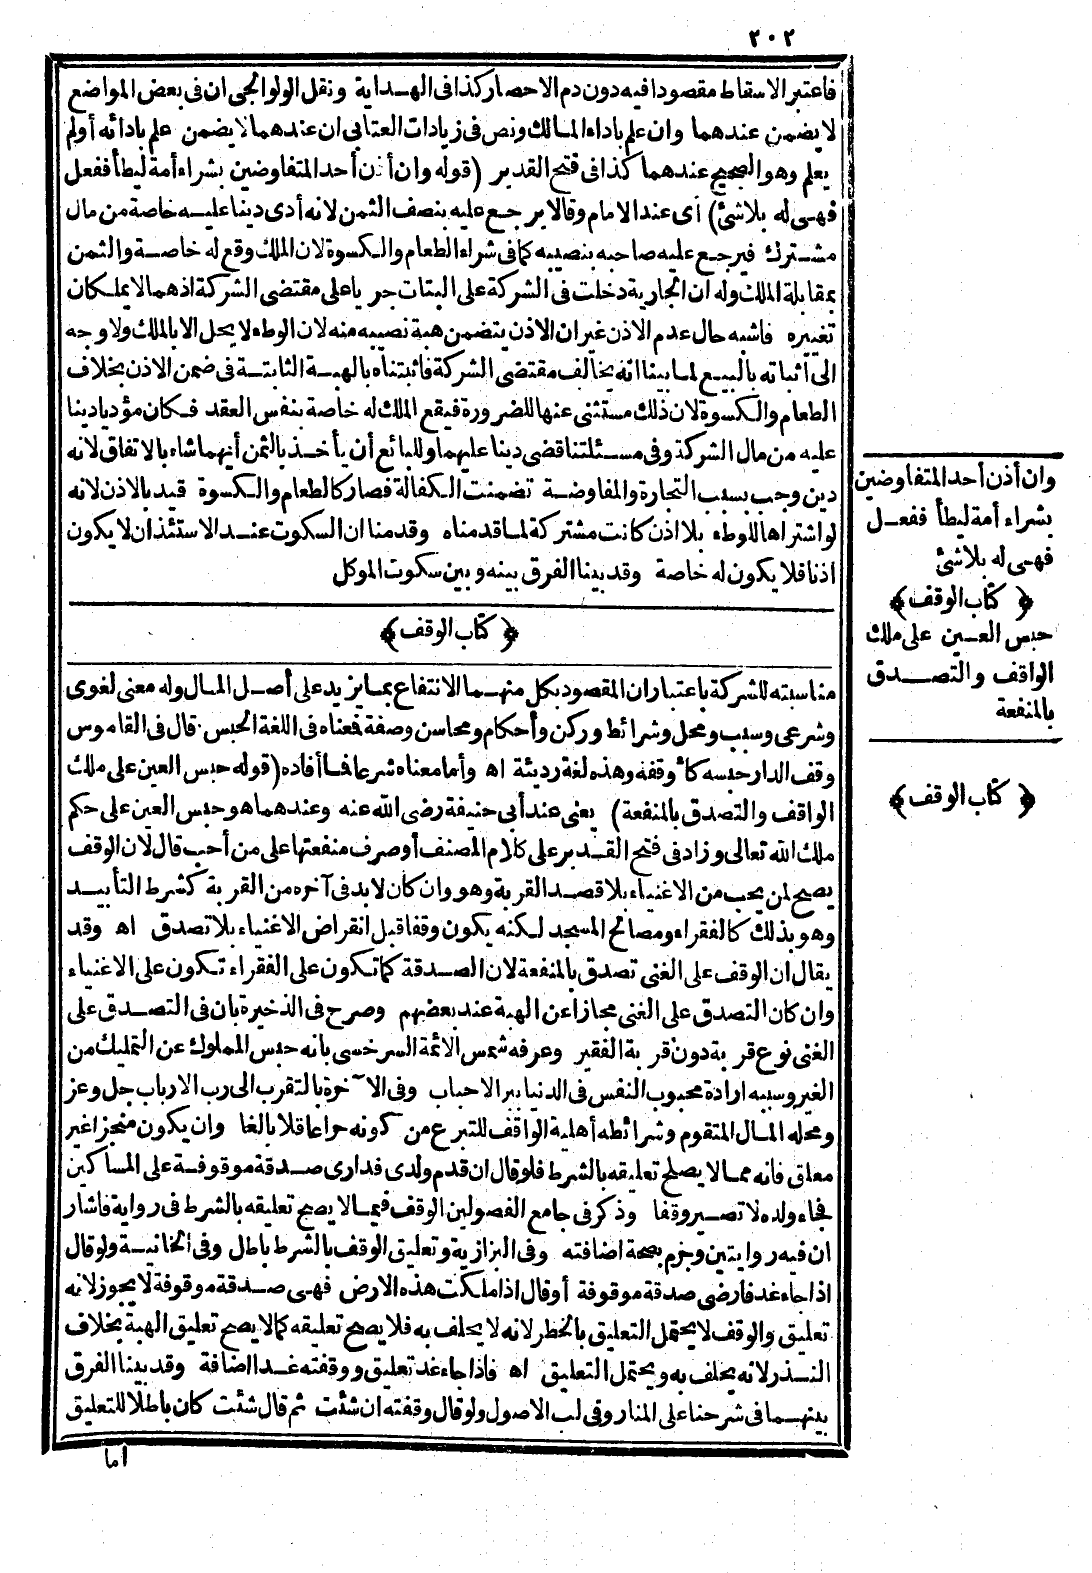 ٢٠٢
فاعتبر الاسقاط مقصودا فيه دون دم الاحصار كذا فى الهداية ونقل الولوالجى ان فى بعض المواضع
لا يضمن عندهما وان علم باداء المالك ونص فى زيادات العتابى ان عندهما لا يضمن علم بادائه أولم
يعلم وهو الصحيح عندهما كذا فى فتح القدير (قوله وان أذن أحد المتفاوضين بشراء أمة ليطأ ففعل
فهى له بلاشئ) أى عند الامام وقالا يرجع عليه بنصف الثمن لانه أدى دينا عليه خاصة من مال
مشترك فيرجع عليه صاحبه بنصيبه كما فى شراء الطعام والكسوة لان الملك وقع له خاصة والثمن
بمقابلة الملك وله ان الجارية دخلت فى الشركة على البتات جريا على مقتضى الشركة اذهما لا يملكان
تغييره فاشبه حال عدم الاذن غير ان الاذن يتضمن هبة نصيبه منه لان الوطء لا يحل الا بالملك ولا وجه
الى اثباته بالبيع لما بينا انه يخالف مقتضى الشركة فاثبتناه بالهبة الثابتة فى ضمن الاذن بخلاف
الطعام والكسوة لان ذلك مستثنى عنها للضرورة فيقع الملك له خاصة بنفس العقد فكان مؤديا دينا
عليه من مال الشركة وفى مسئلتنا قضى دينا عليهما وللبائع أن يأخذ بالثمن أيهما شاء بالاتفاق لانه
دين وجب بسبب التجارة والمفاوضة تضمنت الكفالة فصار كالطعام والكسوة قيد بالاذن لانه
لو اشتراها للوطء بلا اذن كانت مشتركة لما قدمناه وقدمنا ان السكوت عند الاستئذان لا يكون
اذنا فلا يكون له خاصة وقد بينا الفرق بينه وبين سكوت الموكل
﴿ كتاب الوقف ﴾
مناسبته للشركة باعتبار ان المقصود بكل منهما الانتفاع بما يزيد على أصل المال وله معنى لغوى
وشرعى وسبب ومحل وشرائط وركن وأحكام ومحاسن وصفة فعناه فى اللغة الحبس قال فى القاموس
وقف الدار حبسه كأوقفه وهذه لغة رديئة اه وأما معناه شرعا فما أفاده (قوله حبس العين على ملك
الواقف والتصدق بالمنفعة) يعنى عند أبى حنيفة رضى الله عنه وعندهما هو حبس العين على حكم
ملك الله تعالى وزاد فى فتح القدير على كلام المصنف أو صرف منفعتها على من أحب قال لان الوقف
يصح لمن يحب من الاغنياء بلا قصد القربة وهو وان كان لابد فى آخره من القربة كشرط التأبيد
وهو بذلك كالفقراء ومصالح المسجد لكنه يكون وقفا قبل انقراض الاغنياء بلا تصدق اه وقد
يقال ان الوقف على الغنى تصدق بالمنفعة لان الصدقة كما تكون على الفقراء تكون على الاغنياء
وان كان التصدق على الغنى مجازا عن الهبة عند بعضهم وصرح فى الذخيرة بان فى التصدق على
الغنى نوع قربة دون قربة الفقير وعرفه شمس الائمة السرخسى بانه حبس المملوك عن التمليك من
الغير وسببه ارادة محبوب النفس فى الدنيا ببر الاحباب وفى الآخرة بالتقرب الى رب الارباب جل وعز
ومحله المال المتقوم وشرائطه أهلية الواقف للتبرع من كونه حرا عاقلا بالغا وان يكون منجزا غير
معلق فانه مما لا يصلح تعليقه بالشرط فلو قال ان قدم ولدى فدارى صدقة موقوفة على المساكين
فجاء ولده لا تصير وقفا وذكر فى جامع الفصولين الوقف فيما لا يصح تعليقه بالشرط فى رواية فاشار
ان فيه روايتين وجزم بصحة اضافته وفى البزازية وتعليق الوقف بالشرط باطل وفى الخانية ولو قال
اذا جاء غد فأرضى صدقة موقوفة أو قال اذا ملكت هذه الارض فهى صدقة موقوفة لا يجوز لانه
تعليق والوقف لا يحتمل التعليق بالخطر لانه لا يحلف به فلا يصح تعليقه كما لا يصح تعليق الهبة بخلاف
النذر لانه يحلف به ويحتمل التعليق اه فاذا جاء غد تعليق ووقفته غدا اضافة وقد بينا الفرق
بينهما فى شرحنا على المنار وفى لب الاصول ولو قال وقفته ان شئت ثم قال شئت كان باطلا للتعليق
اما
وان أذن أحد المتفاوضين
بشراء أمة ليطأ ففعل
فهى له بلاشئ
﴿ كتاب الوقف ﴾
حبس العين على ملك
الواقف والتصدق
بالمنفعة
﴿ كتاب الوقف ﴾